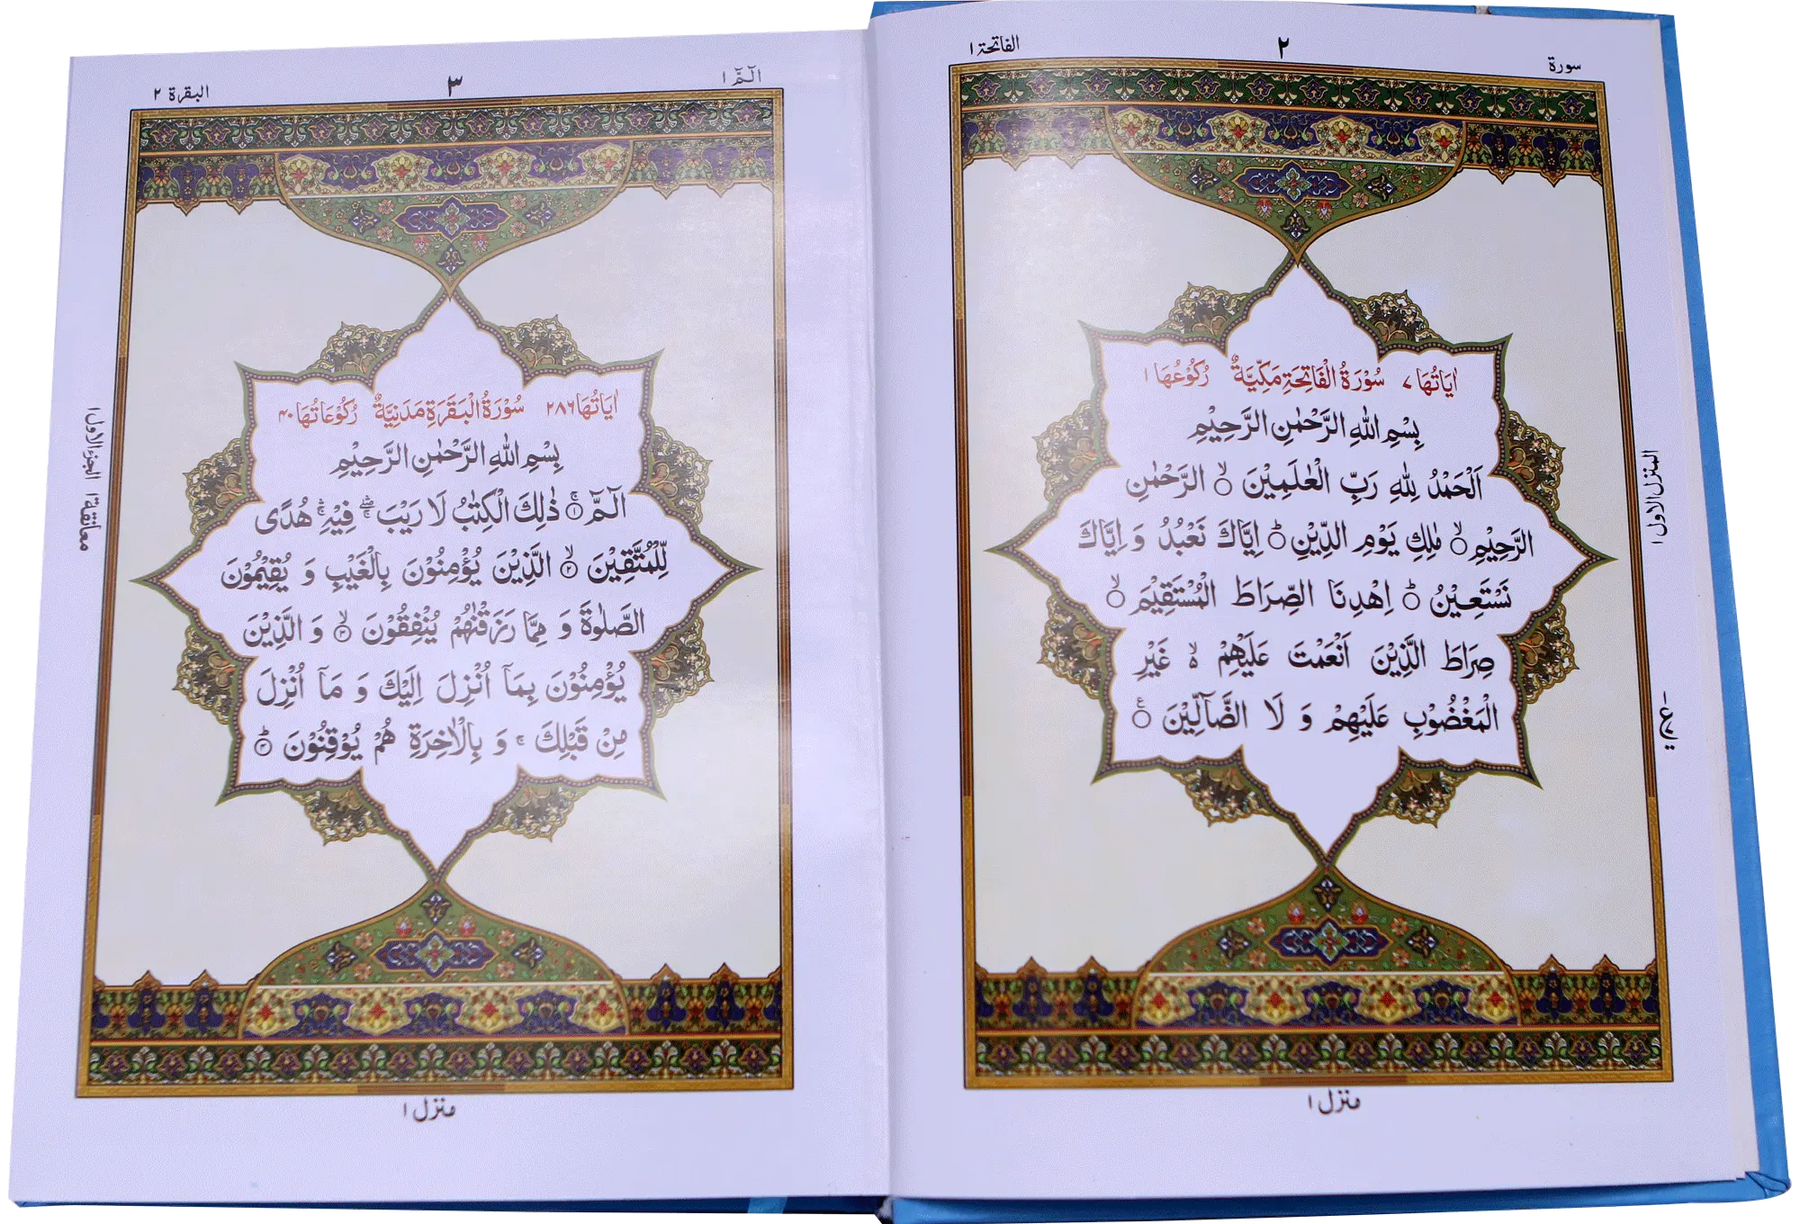 سورة
٢
الفاتحة ١
اٰيَاتُهَا ٧ سُوْرَةُ الْفَاتِحَةِ مَكِّيَّةٌ رُكُوْعُهَا ١
بِسْمِ اللّٰهِ الرَّحْمٰنِ الرَّحِيْمِ
اَلْحَمْدُ لِلّٰهِ رَبِّ الْعٰلَمِيْنَ ۙ الرَّحْمٰنِ
الرَّحِيْمِ ۙ مٰلِكِ يَوْمِ الدِّيْنِ ؕ اِيَّاكَ نَعْبُدُ وَ اِيَّاكَ
نَسْتَعِيْنُ ؕ اِهْدِنَا الصِّرَاطَ الْمُسْتَقِيْمَ ۙ
صِرَاطَ الَّذِيْنَ اَنْعَمْتَ عَلَيْهِمْ ۙ غَيْرِ
الْمَغْضُوْبِ عَلَيْهِمْ وَ لَا الضَّآلِّيْنَ
منزل ١
المنزل الاول ١
الٓمّٓ ١
٣
البقرة ٢
اٰيَاتُهَا ٢٨٦ سُوْرَةُ الْبَقَرَةِ مَدَنِيَّةٌ رُكُوْعَاتُهَا ٤٠
بِسْمِ اللّٰهِ الرَّحْمٰنِ الرَّحِيْمِ
الٓمّٓ ۚ ١ ذٰلِكَ الْكِتٰبُ لَا رَيْبَ ۛۖ فِيْهِ ۛۚ هُدًى
لِّلْمُتَّقِيْنَ ۙ ٢ الَّذِيْنَ يُؤْمِنُوْنَ بِالْغَيْبِ وَ يُقِيْمُوْنَ
الصَّلٰوةَ وَ مِمَّا رَزَقْنٰهُمْ يُنْفِقُوْنَ ۙ ٣ وَ الَّذِيْنَ
يُؤْمِنُوْنَ بِمَاۤ اُنْزِلَ اِلَيْكَ وَ مَاۤ اُنْزِلَ
مِنْ قَبْلِكَ ۚ وَ بِالْاٰخِرَةِ هُمْ يُوْقِنُوْنَ ؕ ٤
منزل ١
معانقة ١ الجزء الاول ١